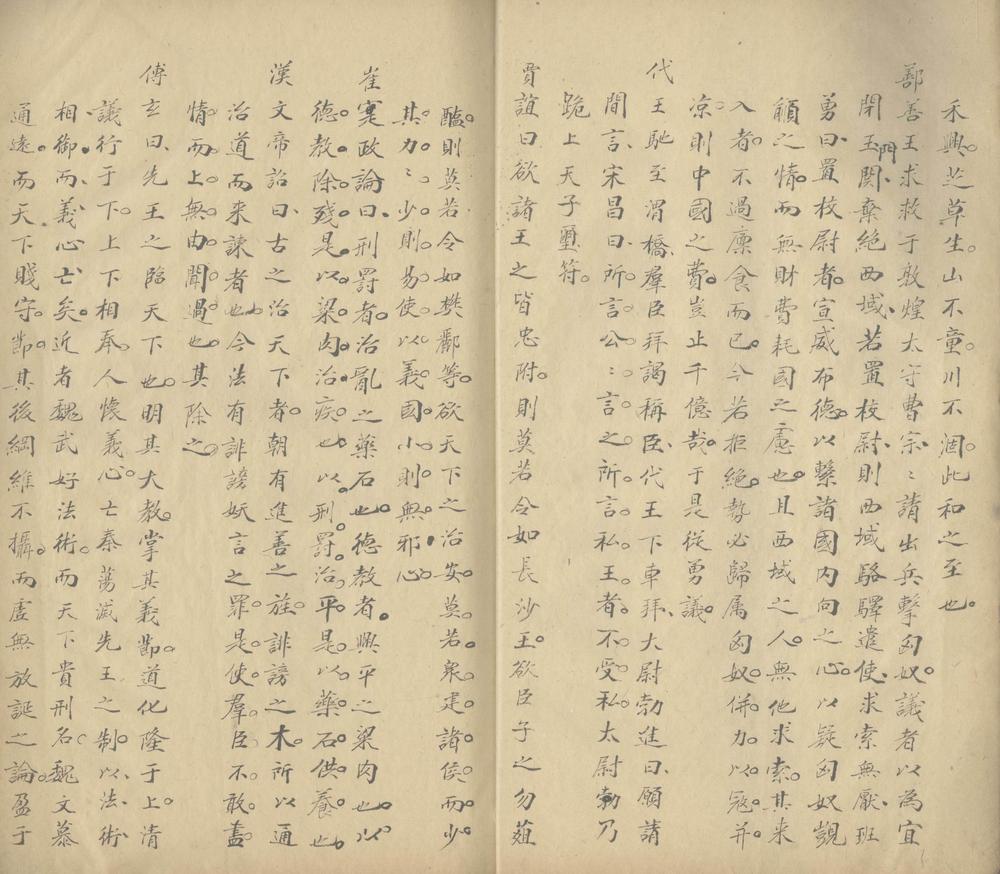 禾興。芝草生。山不童。川不涸。此和之至也。
鄯善王求救于敦煌太守曹宗、宗請出兵擊匈奴。議者以為宜
閉玉門關、棄絕西域、若置校尉、則西域駱驛遣使、求索無厭、班
勇曰、置校尉者。宣威布德。以繫諸國內向之心。以疑匈奴覬
覦之情。而無財費耗國之慮也。且西域之人。無他求索。其來
入者。不過廩食而已。今若拒絕。勢必歸属匈奴。併力。以寇并。
凉。則中國之費。豈止千億哉。于是從勇議。
代王馳至渭橋、羣臣拜謁稱臣、代王下車拜、大尉勃進曰、願請
間言、宋昌曰、所言公、公言之。所言私。王者不受私。太尉勃乃
跪上天子璽符。
賈誼曰、欲諸王之皆忠附。則莫若令如長沙王。欲臣子之勿菹
醢。則莫若令如樊酈等。欲天下之治安。莫若衆建諸侯。而少
其力。力少則易使以義。國小則無邪心。
崔寔政論曰、刑罰者。治亂之藥石也。德教者。興平之粱肉也。以
德教。除殘。是以粱肉治疾也。以刑罰。治平。是以藥石供養也。
漢文帝詔曰、古之治天下者。朝有進善之旌。誹謗之木。所以通
治道而來諫者也。今法有誹謗妖言之罪。是使羣臣不敢盡
情。而上無由聞過也。其除之。
傅玄曰、先王之臨天下也。明其大教。掌其義節。道化隆于上。清
議行于下。上下相奉。人懷義心。亡秦蕩滅先王之制。以法術、
相御而、義心亡矣。近者魏武好法術。而天下貴刑名。魏文慕
通逺。而天下賤守。節。其後綱維不攝。而虛無放誕之論。盈于